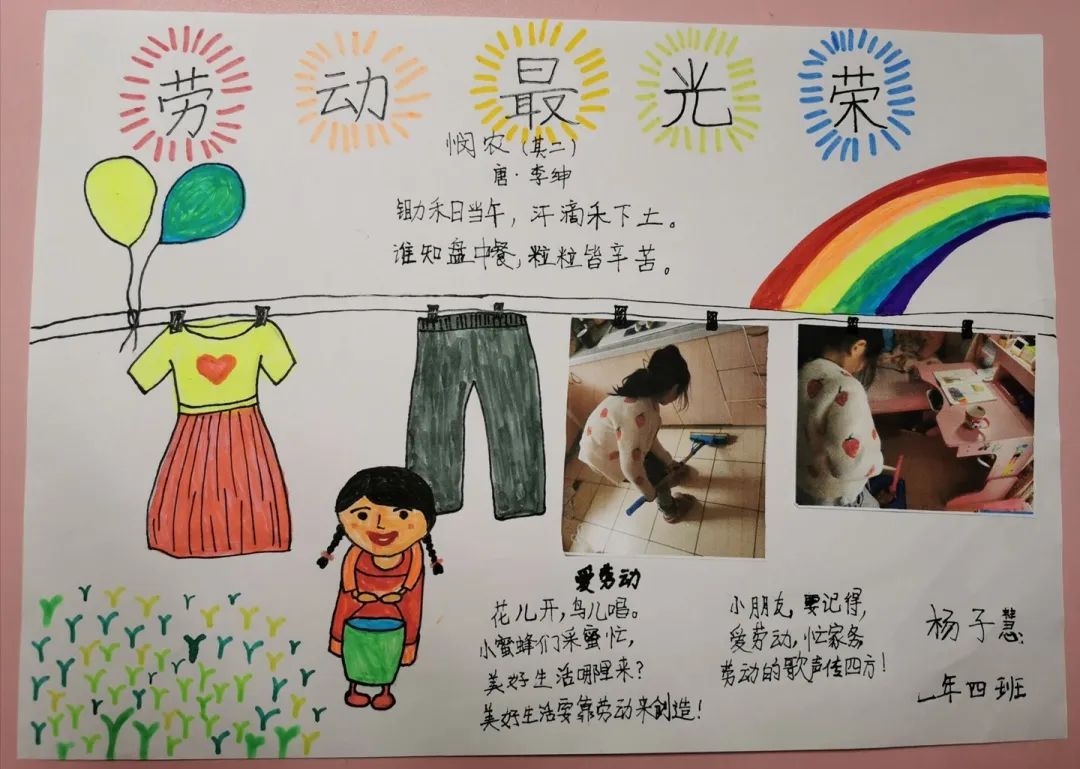 劳动最光荣
悯农(其二)
唐·李绅
锄禾日当午，汗滴禾下土。
谁知盘中餐，粒粒皆辛苦。
爱劳动
花儿开，鸟儿唱。
小蜜蜂们采蜜忙，
美好生活哪里来？
美好生活要靠劳动来创造！
小朋友，要记得，
爱劳动，忙家务
劳动的歌声传四方！
杨子慧
一年四班